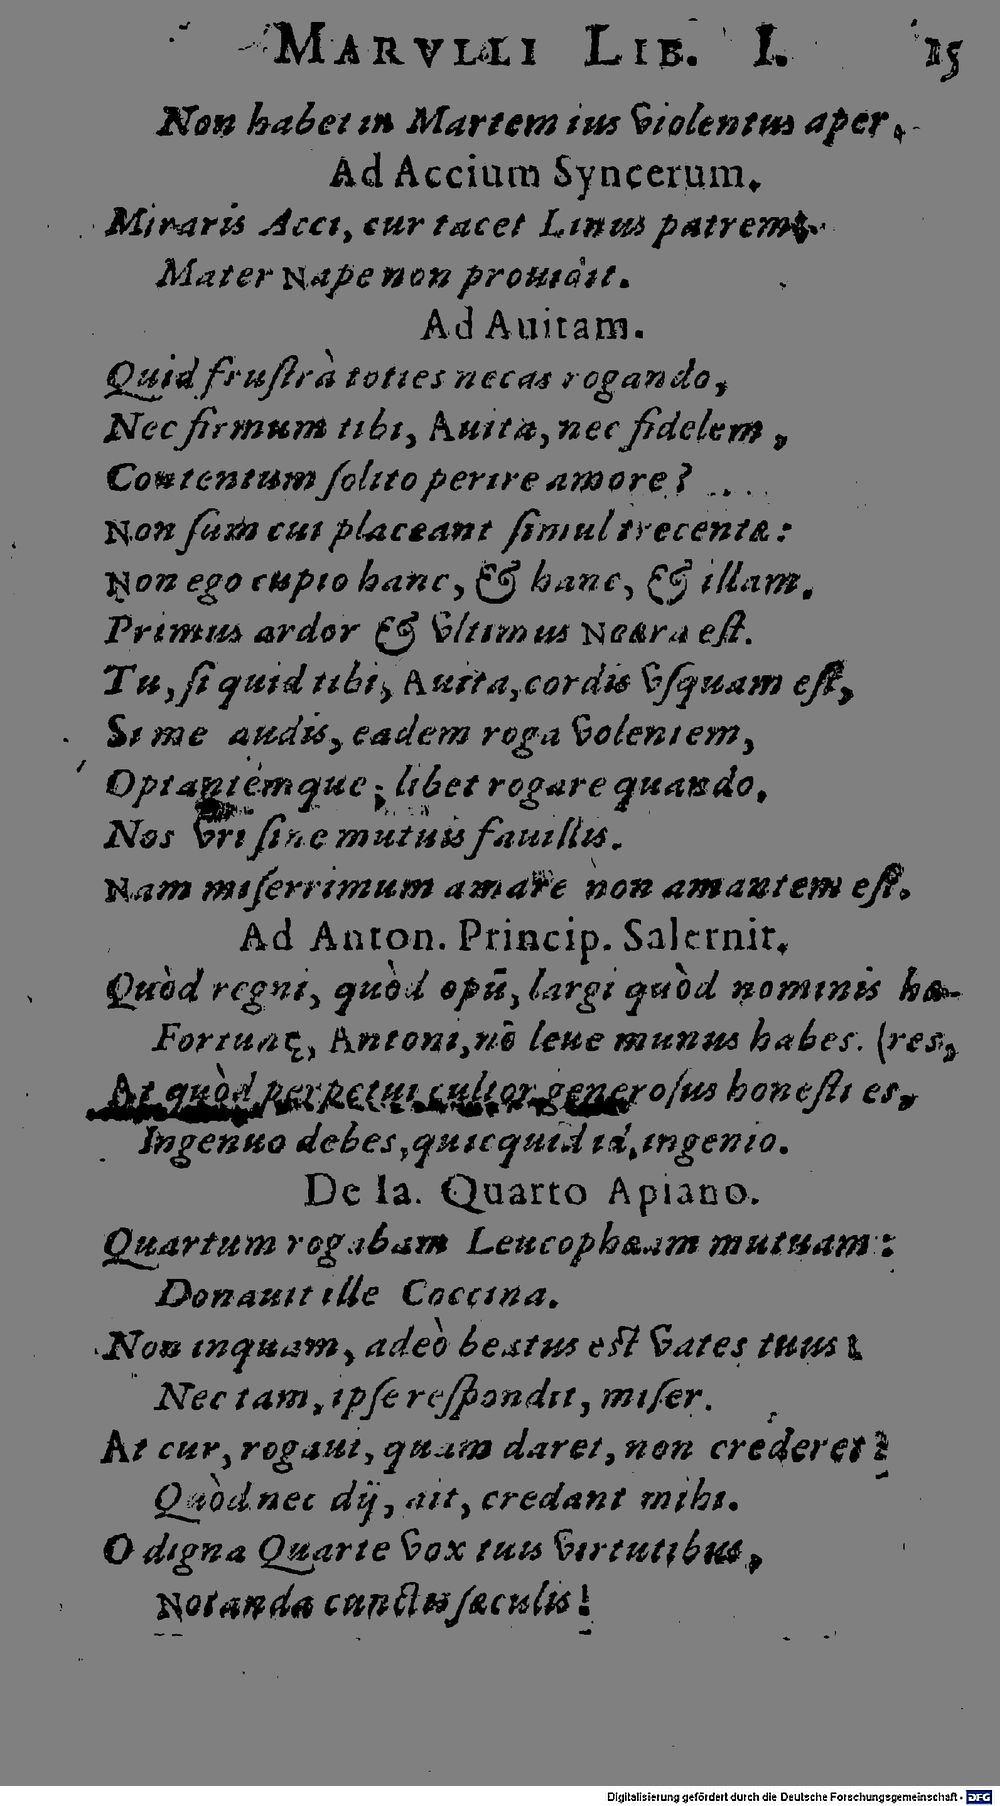 MARVLLI LIB. I. 15
Non habet in Martem ius violentus aper.
Ad Accium Syncerum.
Miraris Acci, cur tacet Linus patrem?
Mater Nape non prouidit.
Ad Auitam.
Quid frustrà toties necas rogando,
Nec firmum tibi, Auita, nec fidelem,
Contentum solito perire amore?
Non sum cui placeant simul trecentæ:
Non ego cupio hanc, & hanc, & illam.
Primus ardor & vltimus Neæra est.
Tu, si quid tibi, Auita, cordis vsquam est,
Si me audis, eadem roga volentem,
Optantémque; libet rogare quando,
Nos vri sine mutuis fauillis.
Nam miserrimum amare non amantem est.
Ad Anton. Princip. Salernit.
Quòd regni, quòd opū, largi quòd nominis hæ-
Fortunę, Antoni, nō leue munus habes. (res,
At quòd perpetui cultor generosus honesti es,
Ingenuo debes, quicquid id, ingenio.
De Ia. Quarto Apiano.
Quartum rogabam Leucophæam mutuam:
Donauit ille Coccina.
Non inquam, adeò beatus est vates tuus:
Nec tam, ipse respondit, miser.
At cur, rogaui, quam daret, non crederet?
Quòd nec dij, ait, credant mihi.
O digna Quarte vox tuis virtutibus,
Notanda cunctis sæculis!
Digitalisierung gefördert durch die Deutsche Forschungsgemeinschaft - DFG